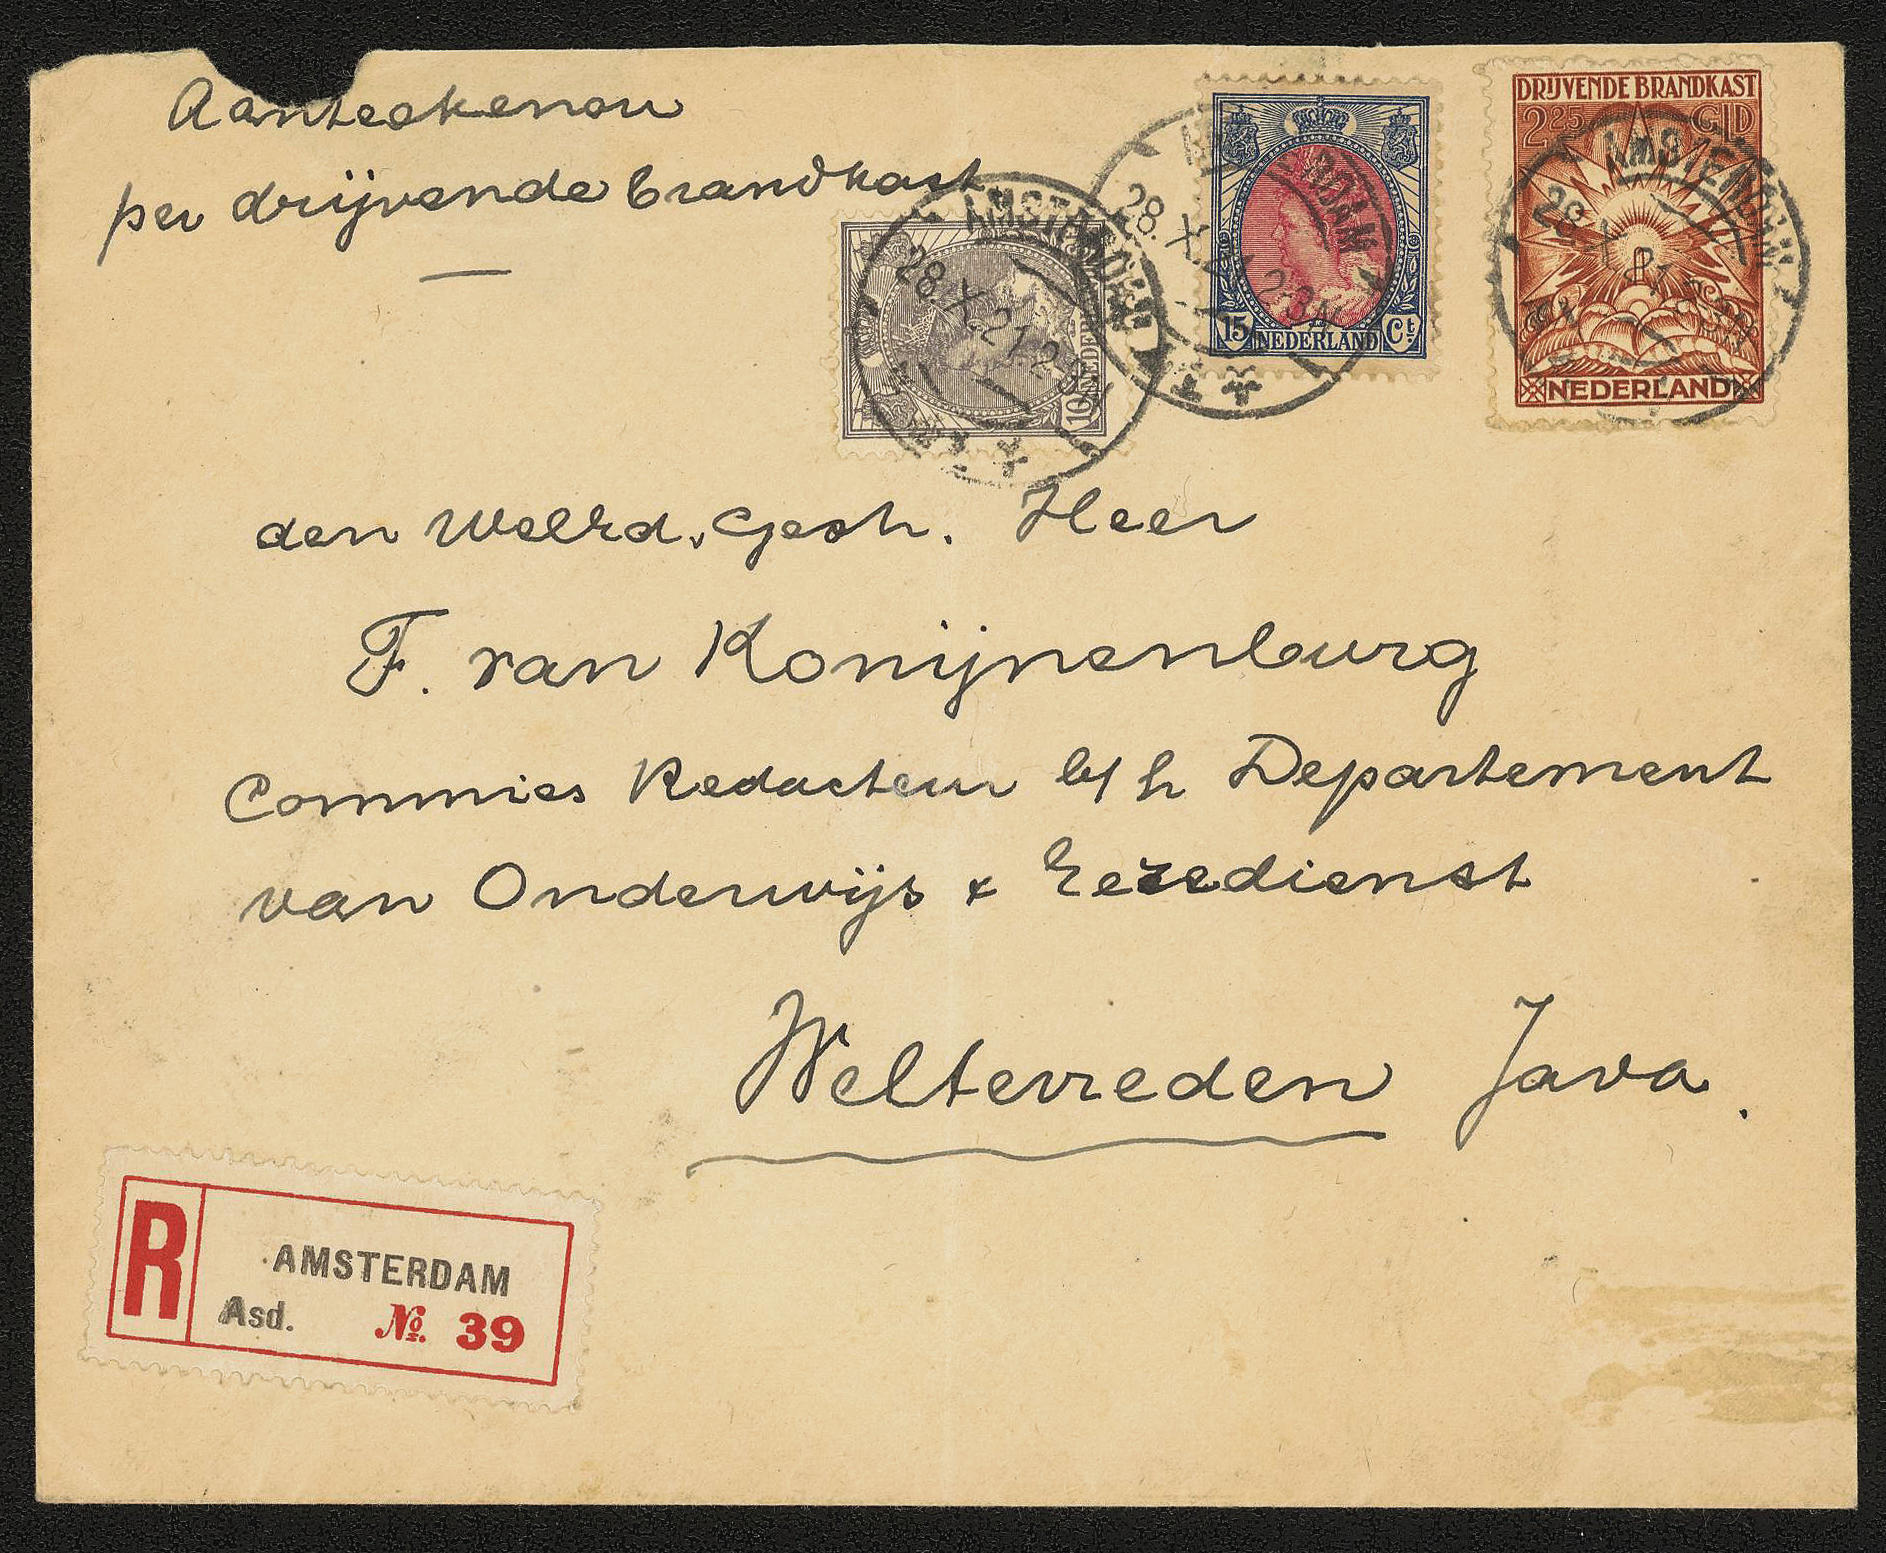 Aanteekenen
per drijvende brandkast
DRIJVENDE BRANDKAST
2.25 GLD
NEDERLAND
AMSTERDAM
28.X.21
15 NEDERLAND Ct
AMSTERDAM
28.X.21 2-3N
10 NEDER
AMSTERDAM
28.X.21.2-3
den WelEd. Gestr. Heer
F. van Konijnenburg
Commies Redacteur b/h Departement
van Onderwijs & Eeredienst
Weltevreden Java.
R
AMSTERDAM
Asd. No. 39